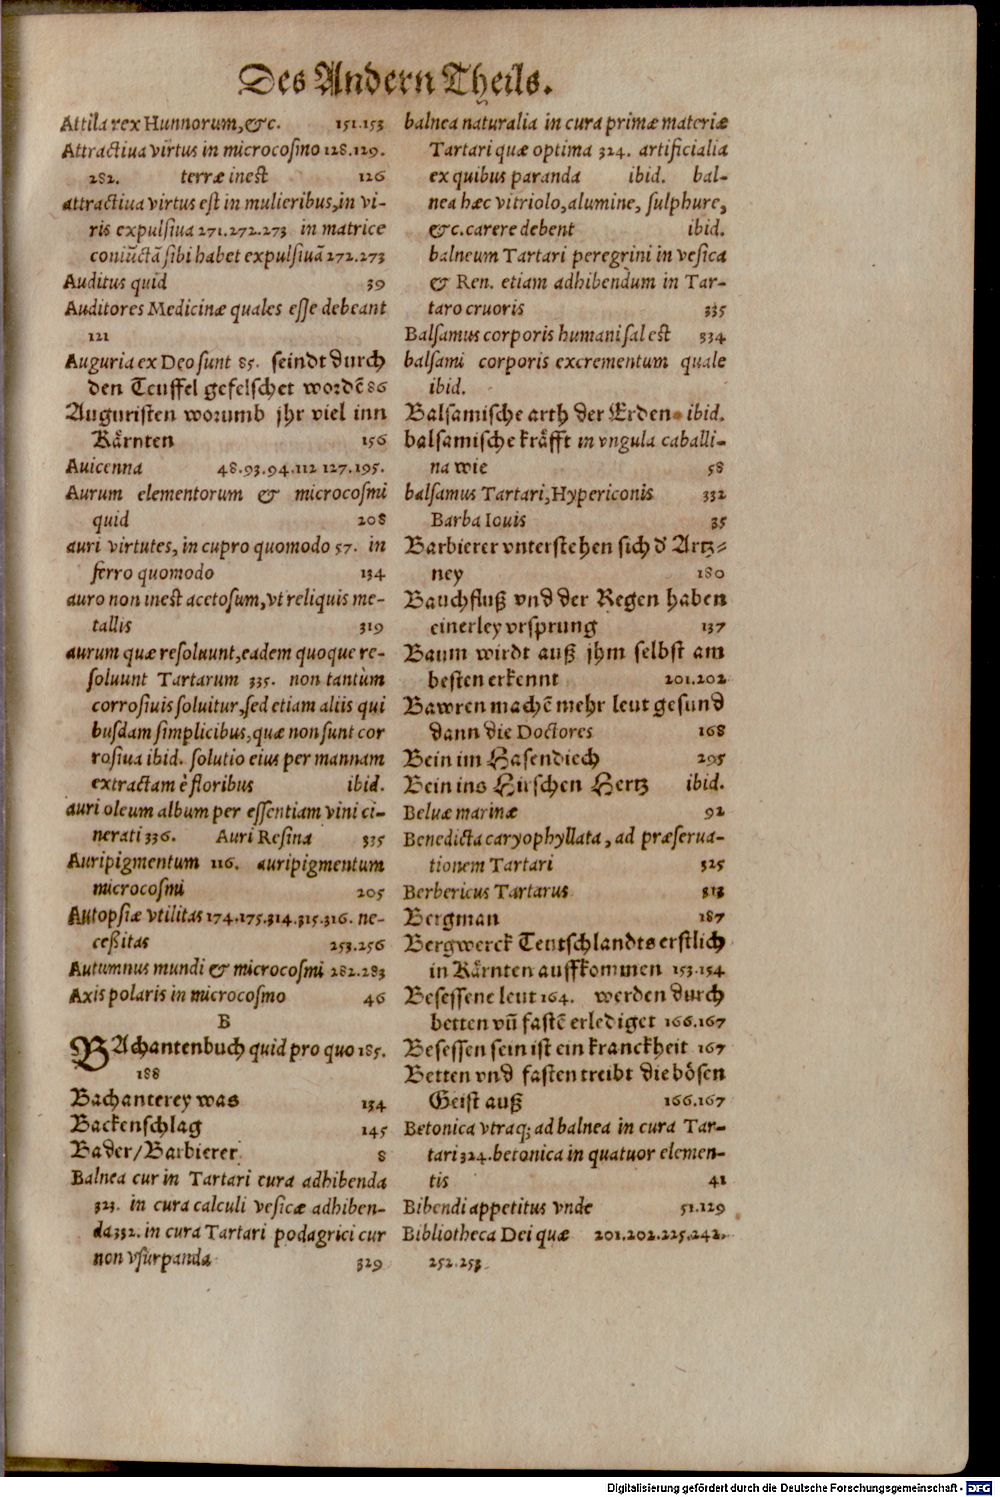 Des Andern Theils.
Attila rex Hunnorum, &c. 151.153
Attractiua virtus in microcosmo 128.129.
282. terræ inest 126
attractiua virtus est in mulieribus, in vi-
ris expulsiua 271.272.273 in matrice
coniũctã sibi habet expulsiuã 272.273
Auditus quid 39
Auditores Medicinæ quales esse debeant
121
Auguria ex Deo sunt 85. seindt durch
den Teuffel gefelschet wordẽ 86
Auguristen worumb jhr viel inn
Kärnten 156
Auicenna 48.93.94.112 127.195.
Aurum elementorum & microcosmi
quid 208
auri virtutes, in cupro quomodo 57. in
ferro quomodo 134
auro non inest acetosum, vt reliquis me-
tallis 319
aurum quæ resoluunt, eadem quoque re-
soluunt Tartarum 335. non tantùm
corrosiuis soluitur, sed etiam aliis qui
busdam simplicibus, quæ non sunt cor
rosiua ibid. solutio eius per mannam
extractam è floribus ibid.
auri oleum album per essentiam vini ci-
nerati 336. Auri Resina 335
Auripigmentum 116. auripigmentum
microcosmi 205
Autopsiæ vtilitas 174.175.314.315.316. ne-
ceßitas 253.256
Autumnus mundi & microcosmi 282.283
Axis polaris in microcosmo 46
B
BAchantenbuch quid pro quo 185.
188
Bachanterey was 134
Backenschlag 145
Bader/Barbierer 8
Balnea cur in Tartari cura adhibenda
323. in cura calculi vesicæ adhiben-
da 332. in cura Tartari podagrici cur
non vsurpanda 329
balnea naturalia in cura primæ materiæ
Tartari quæ optima 324. artificialia
ex quibus paranda ibid. bal-
nea hæc vitriolo, alumine, sulphure,
&c. carere debent ibid.
balneum Tartari peregrini in vesica
& Ren. etiam adhibendum in Tar-
taro cruoris 335
Balsamus corporis humani sal est 334
balsami corporis excrementum quale
ibid.
Balsamische arth der Erden ibid.
balsamische kräfft in vngula caballi-
na wie 58
balsamus Tartari, Hypericonis 332
Barba Iouis 35
Barbierer vnterstehen sich d' Artz-
ney 180
Bauchfluß vnd der Regen haben
einerley vrsprung 137
Baum wirdt auß jhm selbst am
besten erkennt 201.202
Bawren machẽ mehr leut gesund
dann die Doctores 168
Bein im Hasendiech 295
Bein ins Hirschen Hertz ibid.
Beluæ marinæ 92
Benedicta caryophyllata, ad præserua-
tionem Tartari 325
Berbericus Tartarus 313
Bergman 187
Bergwerck Teutschlandts erstlich
in Kärnten auffkommen 153.154
Besessene leut 164. werden durch
betten vñ fastẽ erlediget 166.167
Besessen sein ist ein kranckheit 167
Betten vnd fasten treibt die bösen
Geist auß 166.167
Betonica vtraq; ad balnea in cura Tar-
tari 324. betonica in quatuor elemen-
tis 41
Bibendi appetitus vnde 51.129
Bibliotheca Dei quæ 201.202.225.242.
252.253
Digitalisierung gefördert durch die Deutsche Forschungsgemeinschaft - DFG